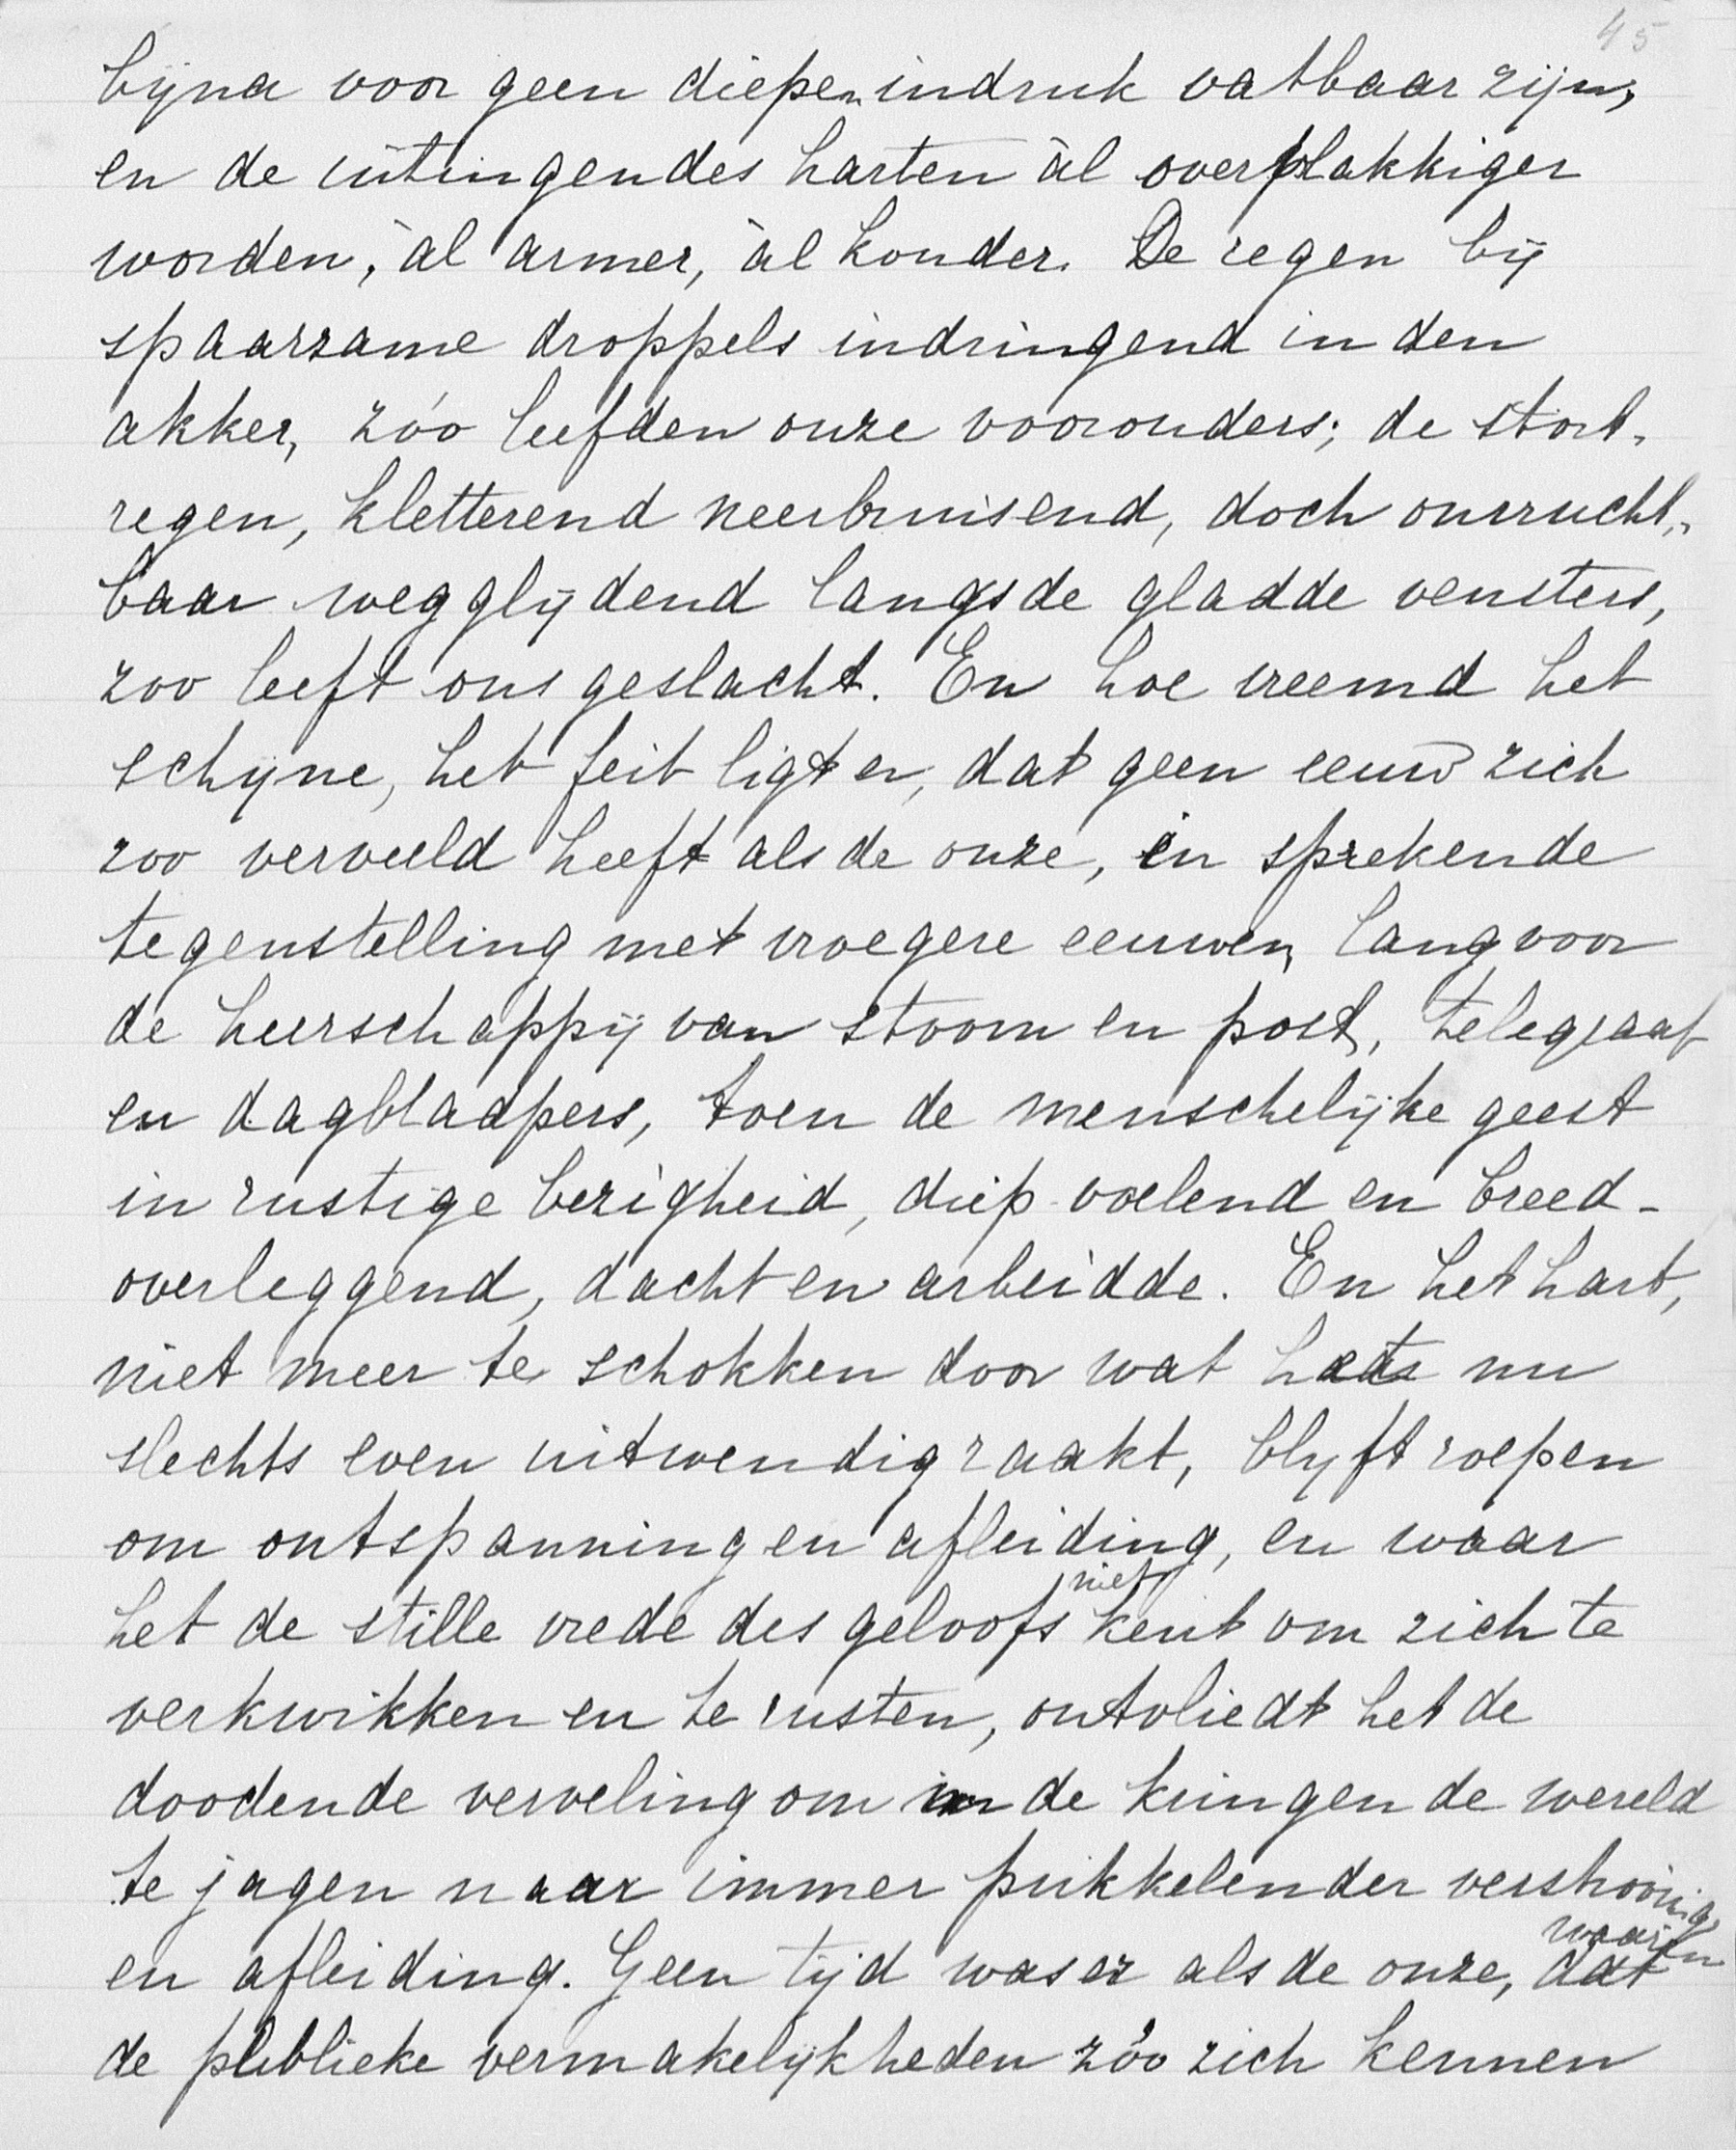 45
bijna voor geen diepen indruk vatbaar zijn,
en de uitingen des harten àl overvlakkiger
worden, àl armer, àl kouder. De regen bij
spaarzame droppels indringend in den
akker, zóo leefden onze voorouders; de stort-
regen, kletterend neerbruisend, doch onvrucht-
baar wegglijdend langs de gladde vensters,
zoo leeft ons geslacht. En hoe vreemd het
schijne, het feit ligt er, dat geen eeuw zich
zoo verveeld heeft als de onze, in sprekende
tegenstelling met vroegere eeuwen, lang voor
de heerschappij van stoom en post, telegraaf
en dagbladpers, toen de menschelijke geest
in rustige bezigheid, diep-voelend en breed-
overleggend, dacht en arbeidde. En het hart,
niet meer te schokken door wat het nu
slechts even uitwendig raakt, blijft roepen
om ontspanning en afleiding, en waar
het de stille vrede des geloofs niet kent om zich te
verkwikken en te rusten, ontvliedt het de
doodende verveling om in de kringen de wereld
te jagen naar immer prikkelender verstrooiing
en afleiding. Geen tijd was er als de onze, dat waarin
de publieke vermakelijkheden zóo zich kennen